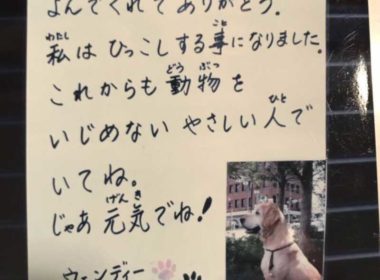 よんでくれてありがとう。
私はひっこしする事になりました。
これからも動物を
いじめない やさしい人で
いてね。
じゃあ 元気でね!
ウェンディー